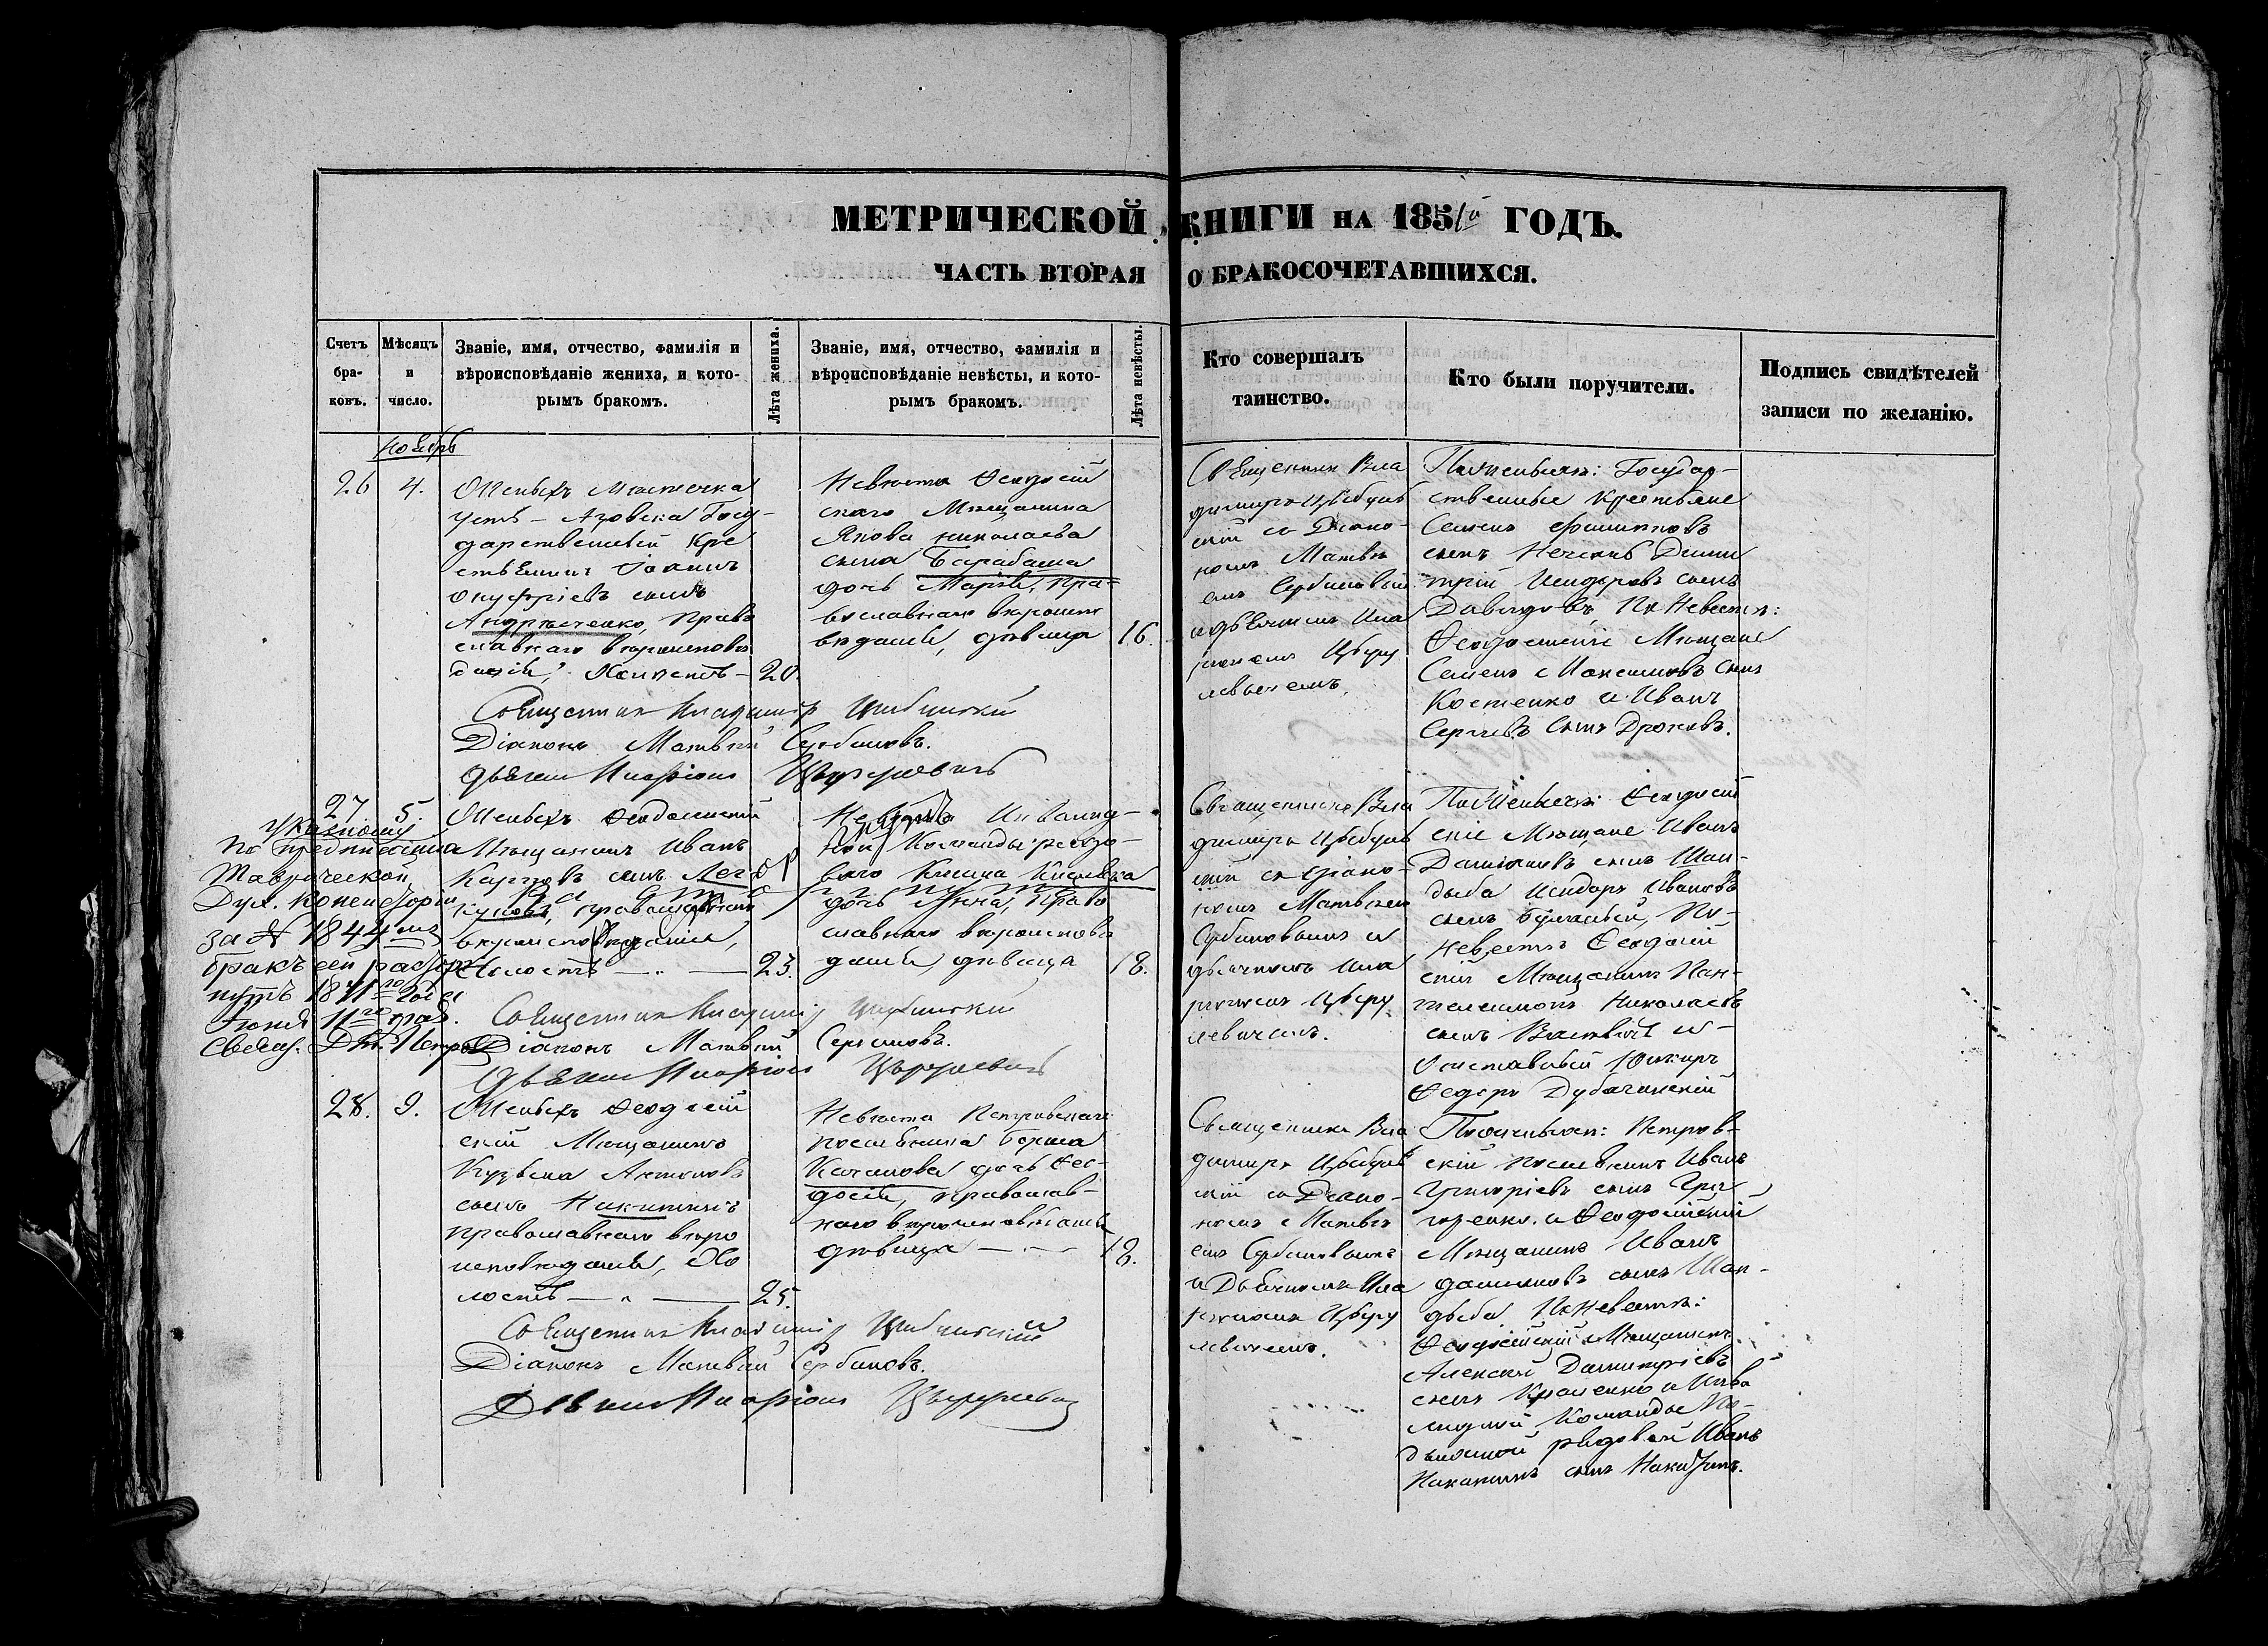 МЕТРИЧЕСКОЙ КНИГИ НА 1851й ГОДЪ.
ЧАСТЬ ВТОРАЯ О БРАКОСОЧЕТАВШИХСЯ.
Счетъ бра-ковъ.
Мѣсяцъ и число.
Званіе, имя, отчество, фамилія и
вѣроисповѣданіе жениха, и кото-
рымъ бракомъ.
Лѣта жениха.
Званіе, имя, отчество, фамилія и
вѣроисповѣданіе невѣсты, и кото-
рымъ бракомъ.
Лѣта невѣсты.
Кто совершалъ
таинство.
Кто были поручители.
Подпись свидѣтелей
записи по желанію.
Ноябрь
26
4.
Женихъ Мѣстечка
Усть-Азовска Госу-
дарственный Кре
стьянинъ Іоаннъ
Онуфріевъ сынъ
Андрѣсенко, Право
славнаго вѣроисповѣ
данія, Холостъ-
20.
Невѣста Ѳеодосій
скаго Мѣщанина
Якова Николаева
сына Барабаша
дочь Марія, Пра-
вославнаго вѣроиспо
вѣданія, дѣвица
16.
Священникъ Вла
димиръ
скій съ Діако-
номъ Матвѣ
емъ Сербиновым
и дьячкомъ Ила
ріономъ
левичемъ.
По Женихѣ: Государ-
ственные Крестьяне
Семенъ Филиповъ
сынъ Нечаевъ Дими
трій Исидоровъ сынъ
Давидовъ, По Невестѣ:
Ѳеодосійскіе Мѣщане
Семенъ Максимовъ сынъ
Костенко и Иванъ
Сергѣевъ сынъ Дроновъ.
Священникъ Владимиръ
Діаконъ Матвѣй Сербиновъ.
Дьячекъ Иларіонъ
27
5.
Указному
По предписанію
Таврической
Дух. Консисторіи
за № 1844мъ
бракъ сей расторг
нутъ 1871го года
Іюня 11го
Женихъ Ѳеодосійскій
Мѣщанинъ Иванъ
Карповъ сынъ
православнаго
вѣроисповѣданія,
Холостъ
23.
Невѣста Инвалид-
ной Команды рядо-
ваго
дочь Анна, Право
славнаго вѣроисповѣ
данія, дѣвица
18.
Священникъ Вла
димиръ
скій съ Діако-
номъ Матвѣемъ
Сербиновымъ и
дьячкомъ Ила
ріономъ
левичемъ.
По Женихѣ: Ѳеодосій
скіе Мѣщане Иванъ
сынъ Шан-
дыба Исидоръ Ивановъ
сынъ По-
невѣстѣ Ѳеодосій
скій Мѣщанинъ Пан-
телеимонъ Николаевъ
сынъ и-
Отставной Юнкеръ
Ѳедоръ
Священникъ Владимиръ
Діаконъ Матвѣй Сербиновъ.
Дьячекъ Иларіонъ
28.
9.
Женихъ Ѳеодосій
скій Мѣщанинъ
Кузьма Антоновъ
сынъ Никитинъ
православнаго вѣро
исповѣданія, Хо
лостъ
25.
Невѣста Петровскаго
поселянина
Качанова дочь Ѳео-
досія, православ-
наго вѣроисповѣданія
дѣвица
18.
Священникъ Вла
димиръ
скій съ Діако-
номъ Матвѣ
емъ Сербиновымъ
и Дьячкомъ Ила
ріономъ
левичемъ.
По женихѣ: Петров-
скій поселянинъ Иванъ
Григоріевъ сынъ Гри
горенко. и Ѳеодосійскій
Мѣщанинъ Иванъ
сынъ Шан-
дыба По Невѣстѣ:
Ѳеодосійскій Мѣщанинъ
Алексѣй Димитріевъ
сынъ и Инва
лидной Команды
рядовой Иванъ
сынъ
Священникъ Владимиръ
Діаконъ Матвѣй Сербиновъ.
Дьячекъ Иларіонъ